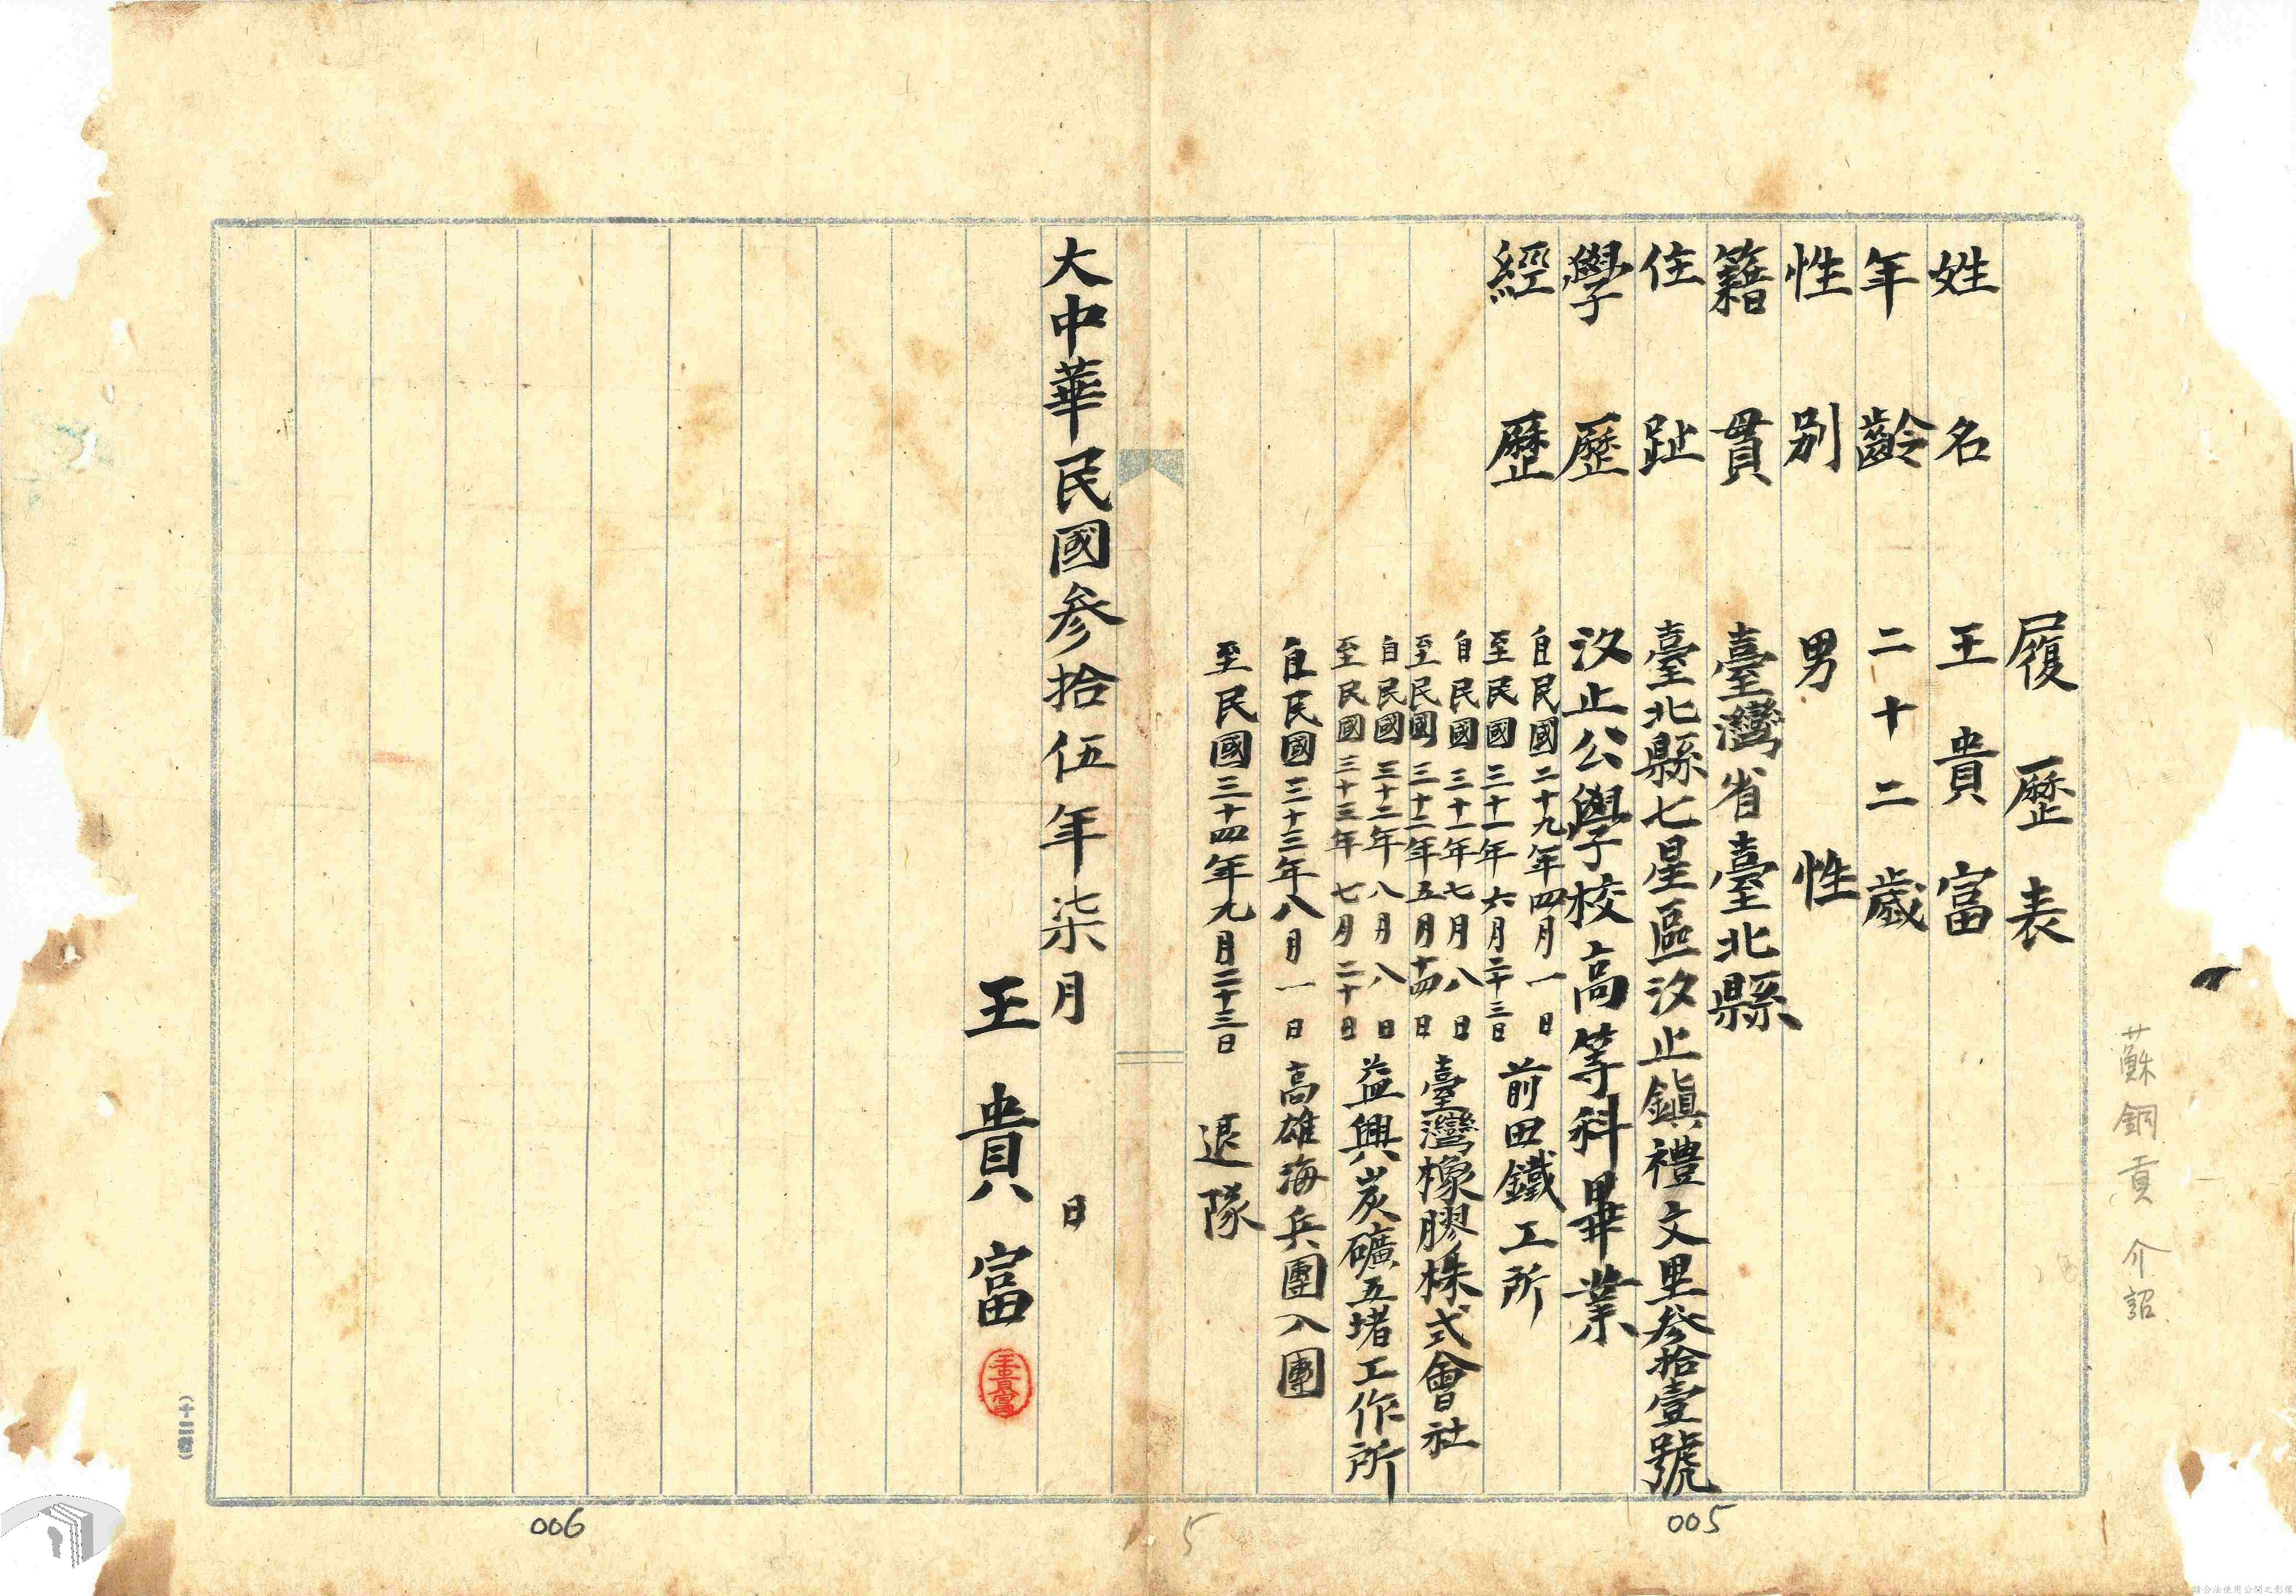 履歷表
姓名 王貴富
年齡 二十二歲
性別 男性
籍貫 臺灣省臺北縣
住趾 臺北縣七星區汐止鎮禮文里參拾壹號
學歷 汐止公學校高等科畢業
經歷 自民國二十九年四月一日
至民國三十一年六月二十三日 前田鐵工所
自民國三十一年七月八日
至民國三十二年五月十四日 臺灣橡膠株式會社
自民國三十二年八月八日
至民國三十三年七月二十日 益興炭礦五堵工作所
自民國三十三年八月一日 高雄海兵團入團
至民國三十四年九月二十三日 退隊
大中華民國參拾伍年柒月 日
王貴富
王貴富
蘇銅貢 介詔
005
5
006